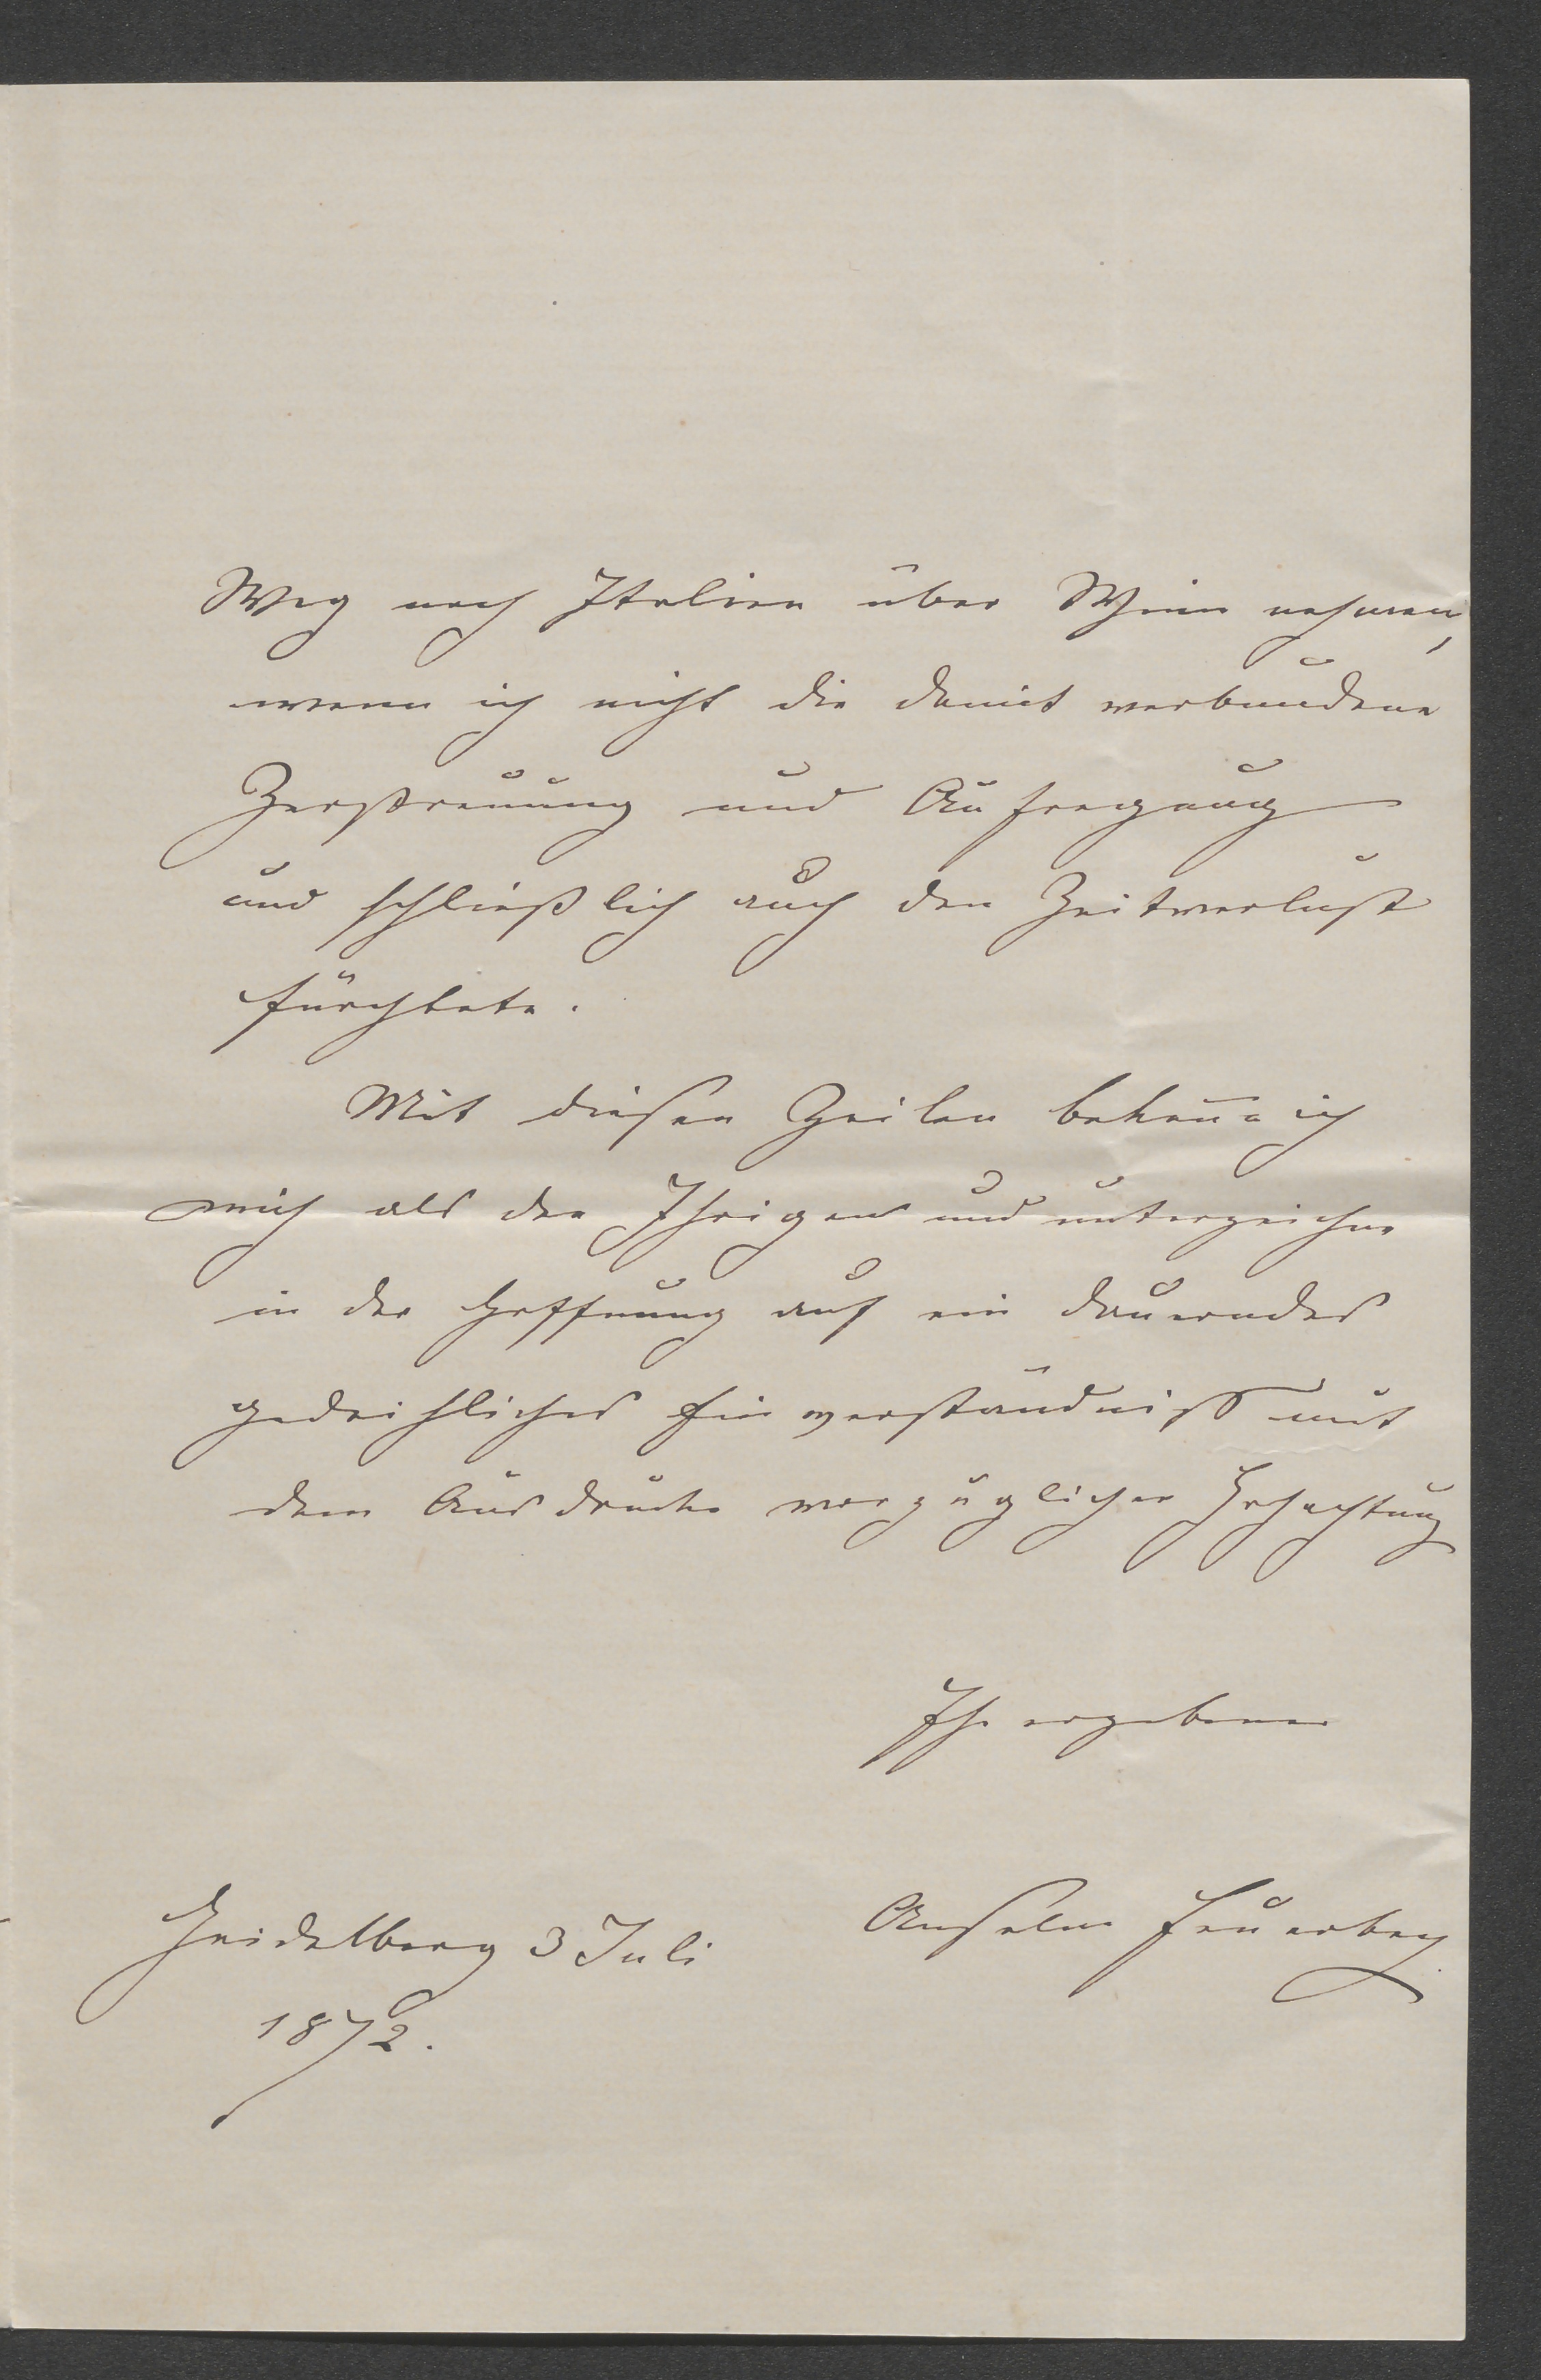 Weg nach Italien über Wien nehmen,
wenn ich nicht die damit verbundene
Zerstreuung und Aufregung
und schließlich auch den Zeitverlust
fürchtete.
Mit diesen Zeilen bekenne ich
mich als den Ihrigen und unterzeichne
in der Hoffnung auf ein dauerndes
gedeihliches Einverständniß mit
dem Ausdrucke vorzüglicher Hochachtung
Ihr ergebener
Anselm Feuerbach
Heidelberg 3 Juli
1872.